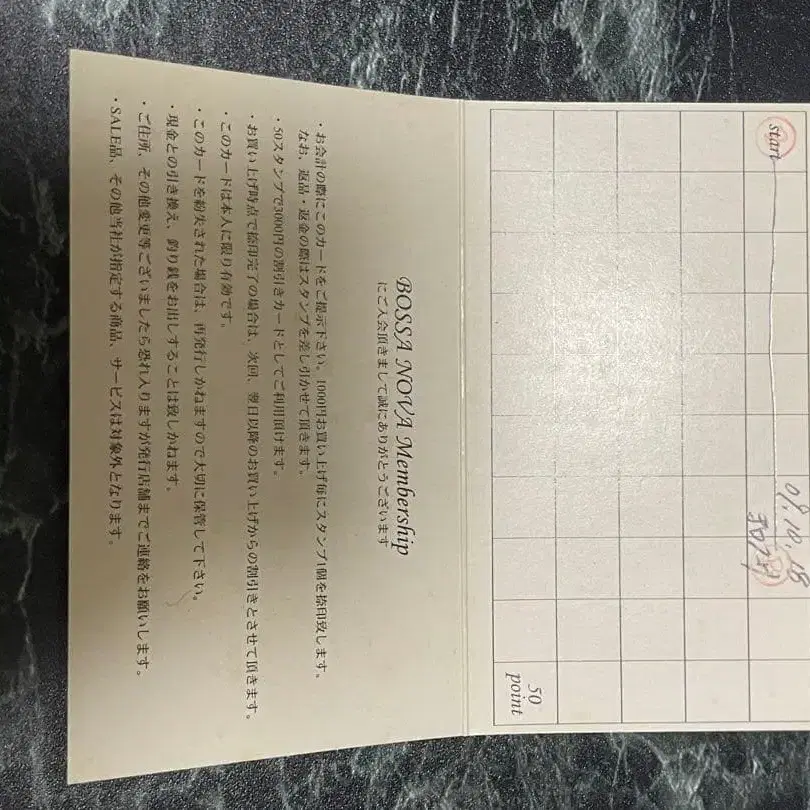 BOSSA NOVA Membership
にご入会頂きまして誠にありがとうございます
・お会計の際にこのカードをご提示下さい。1000円お買い上げ毎にスタンプ1個を捺印致します。
なお、返品・返金の際はスタンプを差し引かせて頂きます。
・50スタンプで3000円の割引きカードとしてご利用頂けます。
・お買い上げ時点で捺印完了の場合は、次回、翌日以降のお買い上げからの割引きとさせて頂きます。
・このカードは本人に限り有効です。
・このカードを紛失された場合は、再発行しかねますので大切に保管して下さい。
・現金との引き換え、釣り銭をお出しすることは致しかねます。
・ご住所、その他変更等ございましたら恐れ入りますが発行店舗までご連絡をお願いします。
・SALE品、その他当社が指定する商品、サービスは対象外となります。
start
09.10.18
50
point